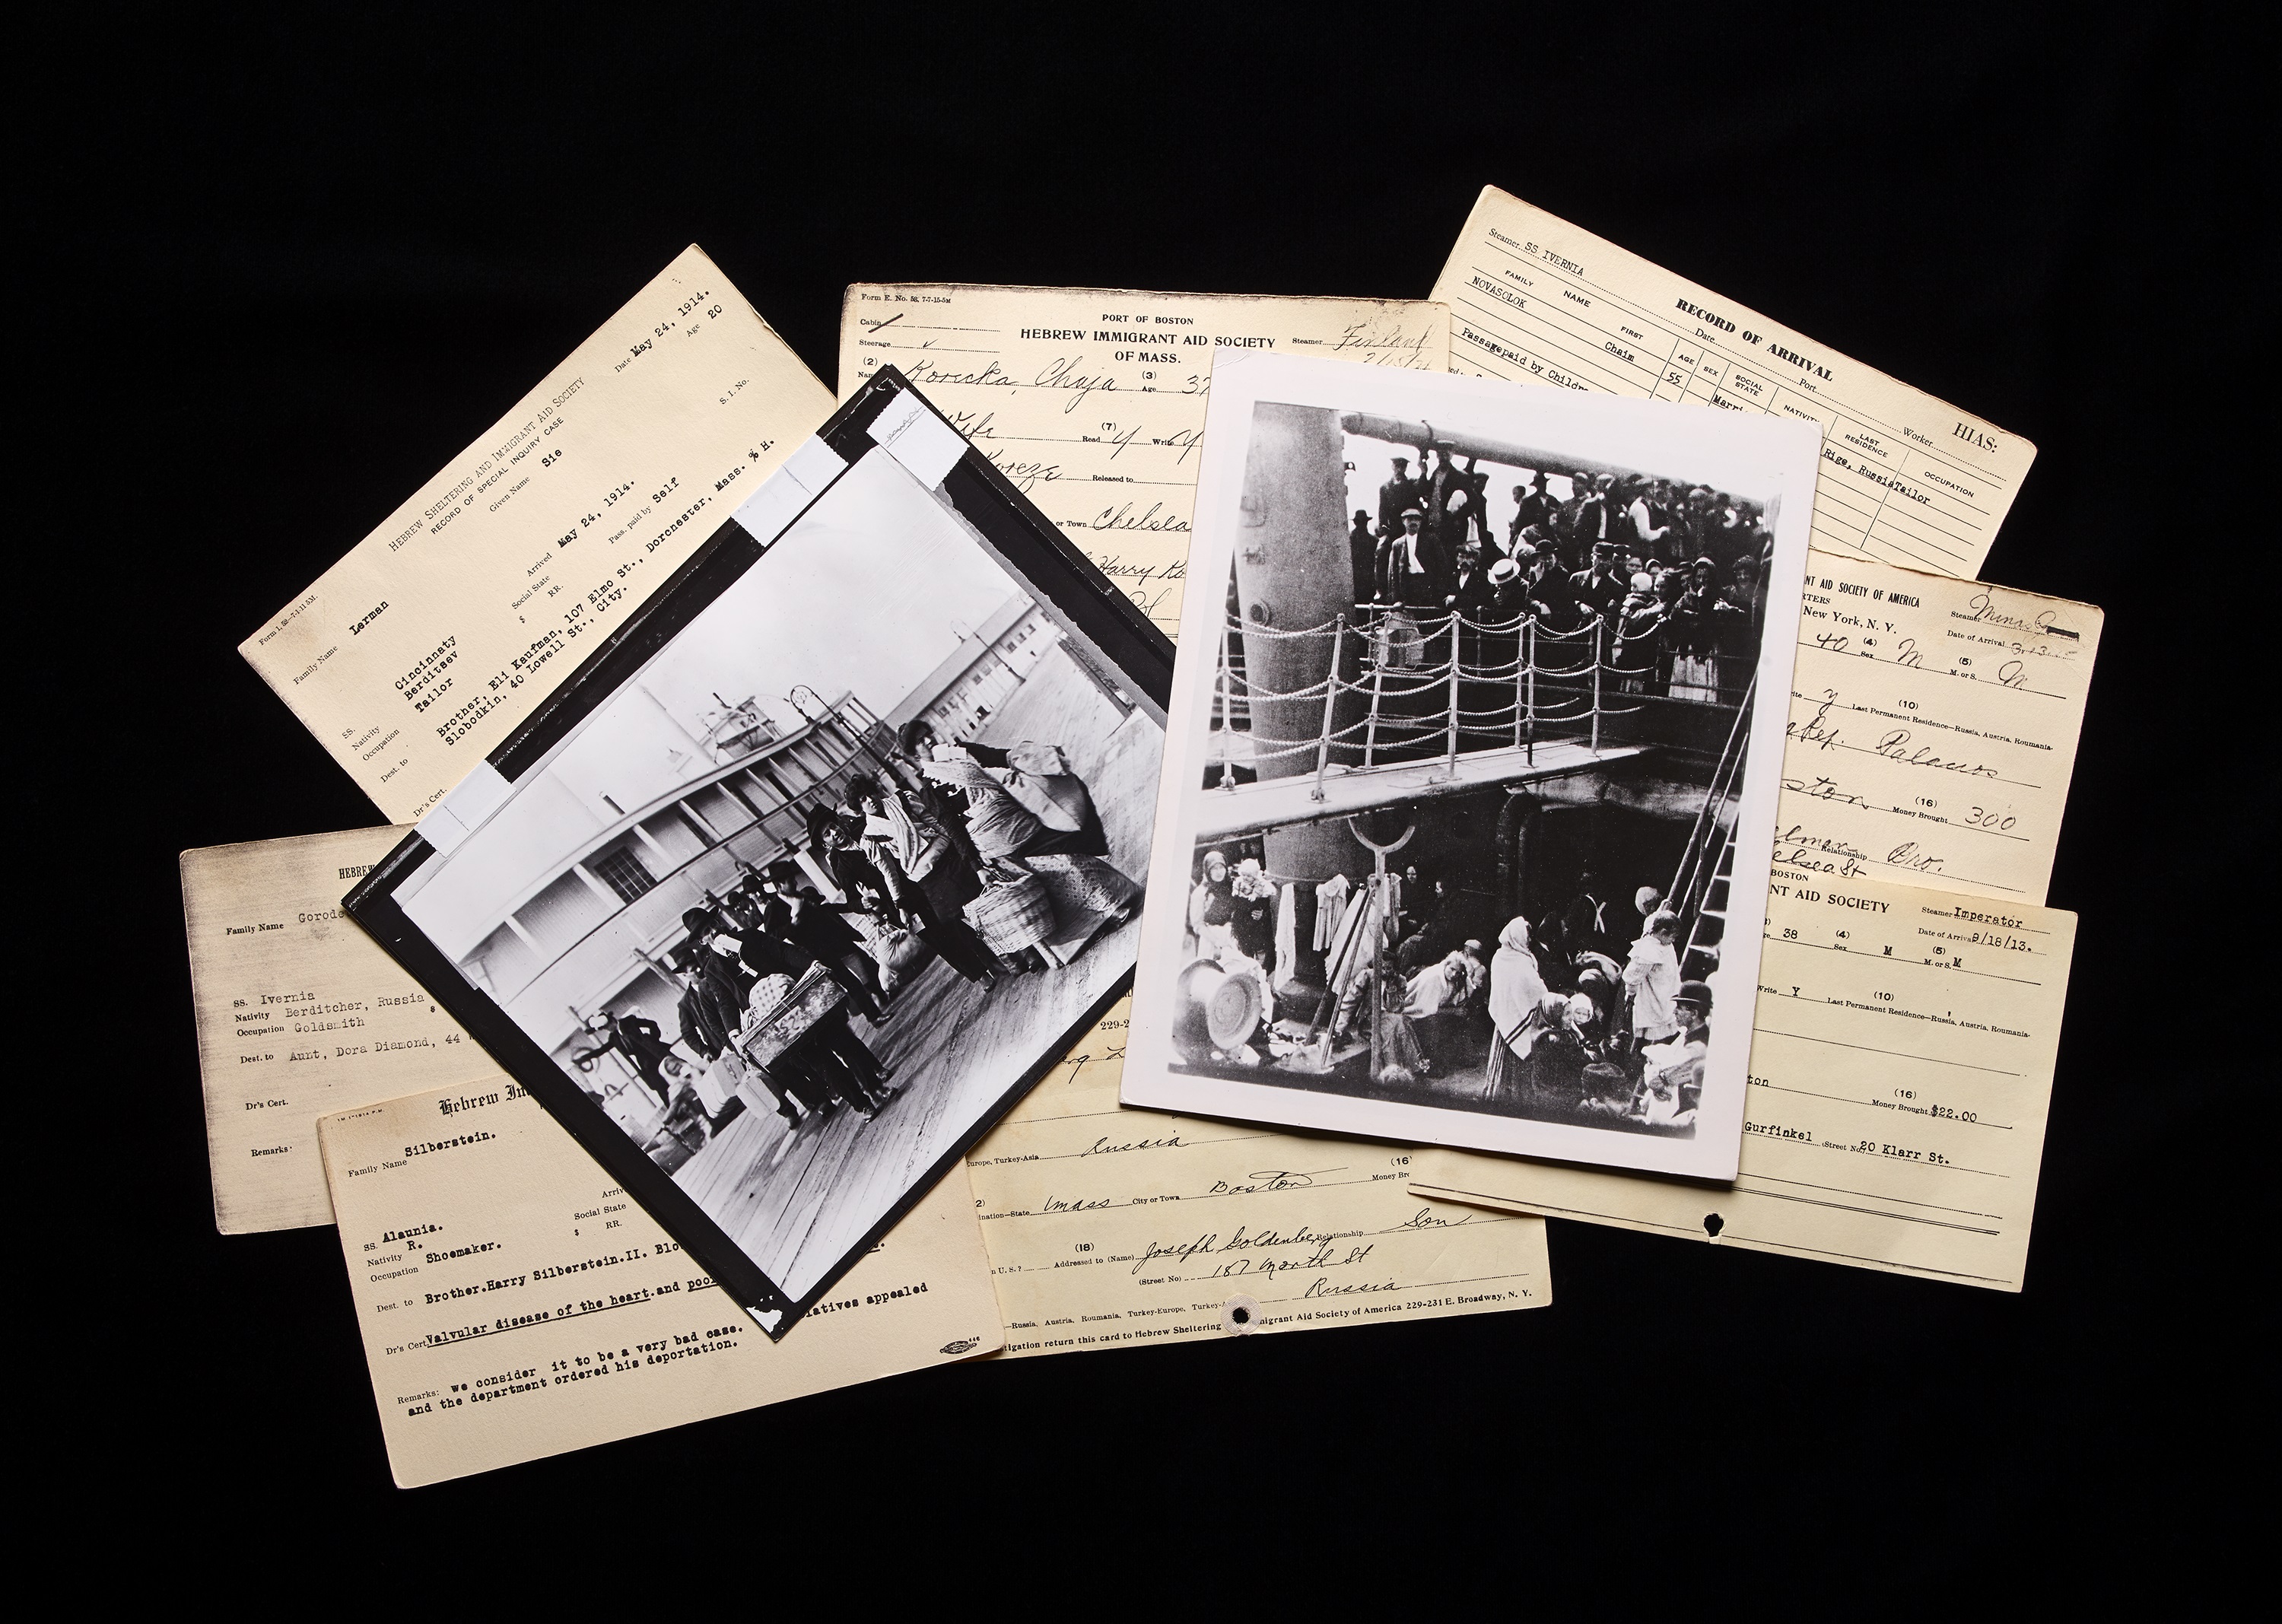 Form 1, 58—7-1-11 5M.
HEBREW SHELTERING AND IMMIGRANT AID SOCIETY
RECORD OF SPECIAL INQUIRY CASE
Date May 24, 1914.
Family Name Lerman
Given Name Sie
Age 20
S. I. No.
SS. Cincinnaty
Arrived May 24, 1914.
Nativity Berditsev
Social State
Pass. paid by Self
Occupation Tailor
$ RR.
Dest. to Brother, Eli Kaufman, 107 Elmo St., Dorchester, Mass. % H.
Slobodkin, 40 Lowell St., City.
Dr's Cert.
Form E. No. 58. 7-7-15-5M
PORT OF BOSTON
HEBREW IMMIGRANT AID SOCIETY
OF MASS.
Cabin
Steerage
Steamer Finland
(2) Koricka, Chaja (3) Age 37
Wife (7) Read Y Write Y
Released to
or Town Chelsea
Harry Ko
Steamer SS IVERNIA
RECORD OF ARRIVAL
HIAS:
Date Port Worker
FAMILY NAME FIRST AGE SEX SOCIAL STATE NATIVITY LAST RESIDENCE OCCUPATION
NOVASOLOK Chaim 55 Marri Rige, Russia Tailor
Passage paid by Childr
NT AID SOCIETY OF AMERICA
RTERS
New York, N. Y.
Steamer
Date of Arrival
40 (4) Sex M (5) M. or S. M
ite y (10) Last Permanent Residence—Russia, Austria, Roumania-
Palanos
ston (16) Money Brought 300
Relationship Bro.
elsea St
BOSTON
NT AID SOCIETY
Steamer Imperator
Date of Arrival 9/18/13.
38 (4) Sex M (5) M. or S. M
Write Y (10) Last Permanent Residence—Russia, Austria, Roumania-
ton (16) Money Brought $22.00
Gurfinkel Street No. 20 Klarr St.
HEBREW
Family Name Gorode
SS. Ivernia
Nativity Berditcher, Russia
Occupation Goldsmith $
Dest. to Aunt, Dora Diamond, 44
Dr's Cert.
Remarks:
Hebrew Im
Family Name Silberstein.
SS. Alaunia.
Arriv
Nativity R.
Social State
Occupation Shoemaker.
$ RR.
Dest. to Brother.Harry Silberstein.II. Blo
Dr's Cert. Valvular disease of the heart.and poor
latives appealed
Remarks: we consider it to be a very bad case.
and the department ordered his deportation.
229-2
urope, Turkey-Asia Russia
ination—State Mass City or Town Boston (16) Money Br
n U. S.? (18) Addressed to (Name) Joseph Goldenberg Relationship Son
(Street No) 187 North St
Russia
—Russia, Austria, Roumania, Turkey-Europe, Turkey-
tigation return this card to Hebrew Sheltering migrant Aid Society of America 229-231 E. Broadway, N. Y.